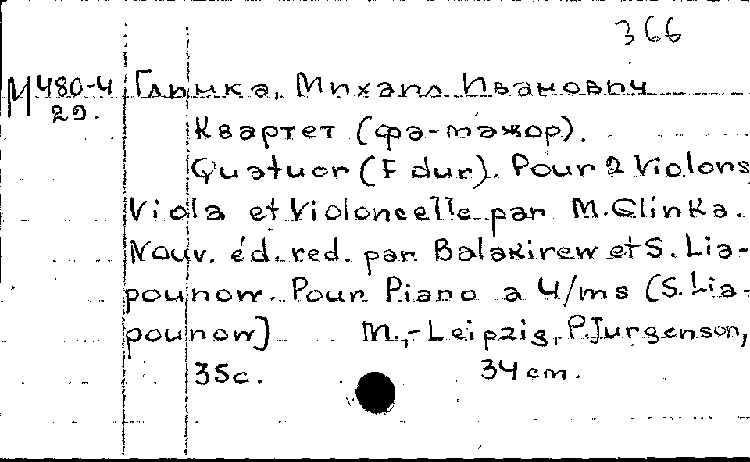 366
М 480-4 Глинка, Михаил Иванович
29.
Квартет (фа-мажор).
Quatuor (F dur). Pour 2 Violons
Viola et Violoncelle par M. Glinka.
Nouv. éd. red. par Balakirew et S. Lia-
pounow. Pour Piano a 4/ms (S. Lia-
pounow) M.,-Leipzig, P. Jurgenson,
35c. 34 cm.